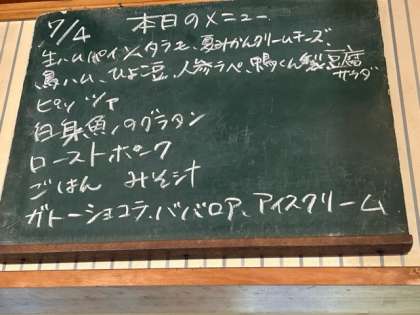 7/4 本日のメニュー
生ハム パイン、タラモ、夏みかんクリームチーズ
鳥ハム、ひよこ豆、人参ラペ、鴨くん製、豆腐サラダ
ピッツァ
白身魚のグラタン
ローストポーク
ごはん みそ汁
ガトーショコラ、ババロア、アイスクリーム